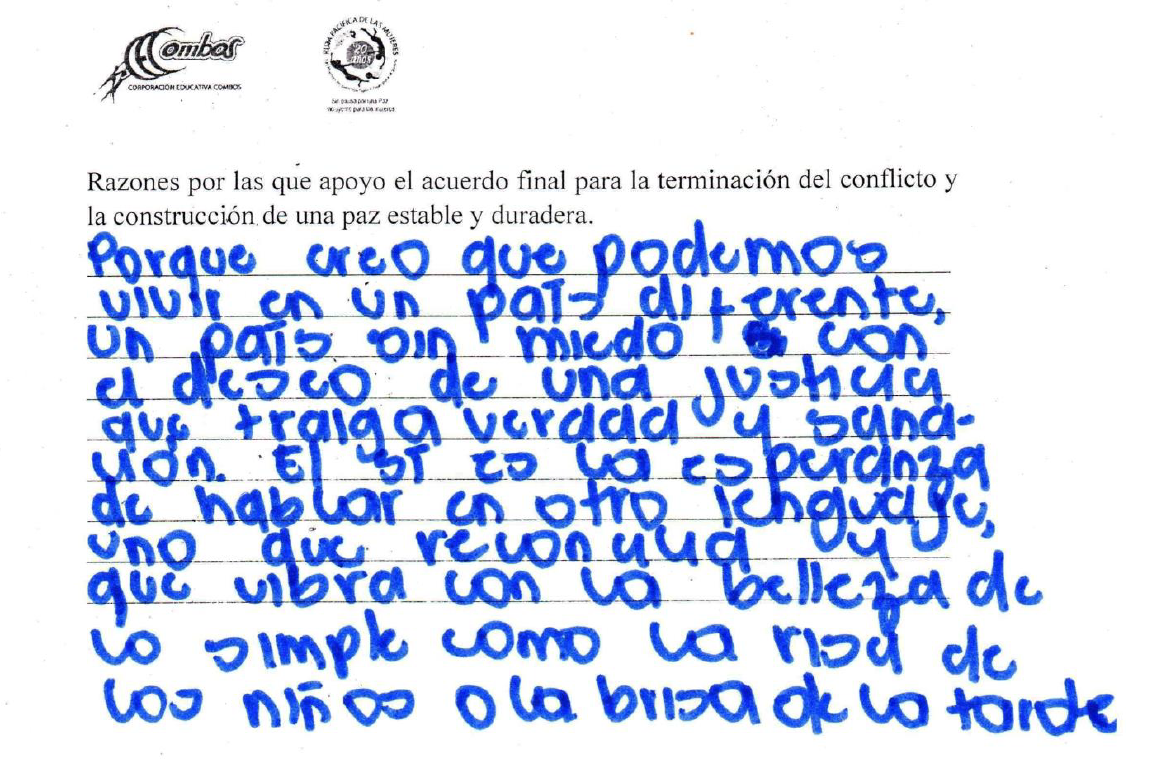 Combos
CORPORACIÓN EDUCATIVA COMBOS
RUTA PACIFICA DE LAS MUJERES
20 años
Razones por las que apoyo el acuerdo final para la terminación del conflicto y
la construcción de una paz estable y duradera.
Porque creo que podemos
vivir en un país diferente,
un país sin miedo con
el deseo de una justicia
que traiga verdad y sana-
ción. El SÍ es la esperanza
de hablar en otro lenguaje,
uno que reconcilia y
que vibra con la belleza de
lo simple como la risa de
los niños o la brisa de la tarde